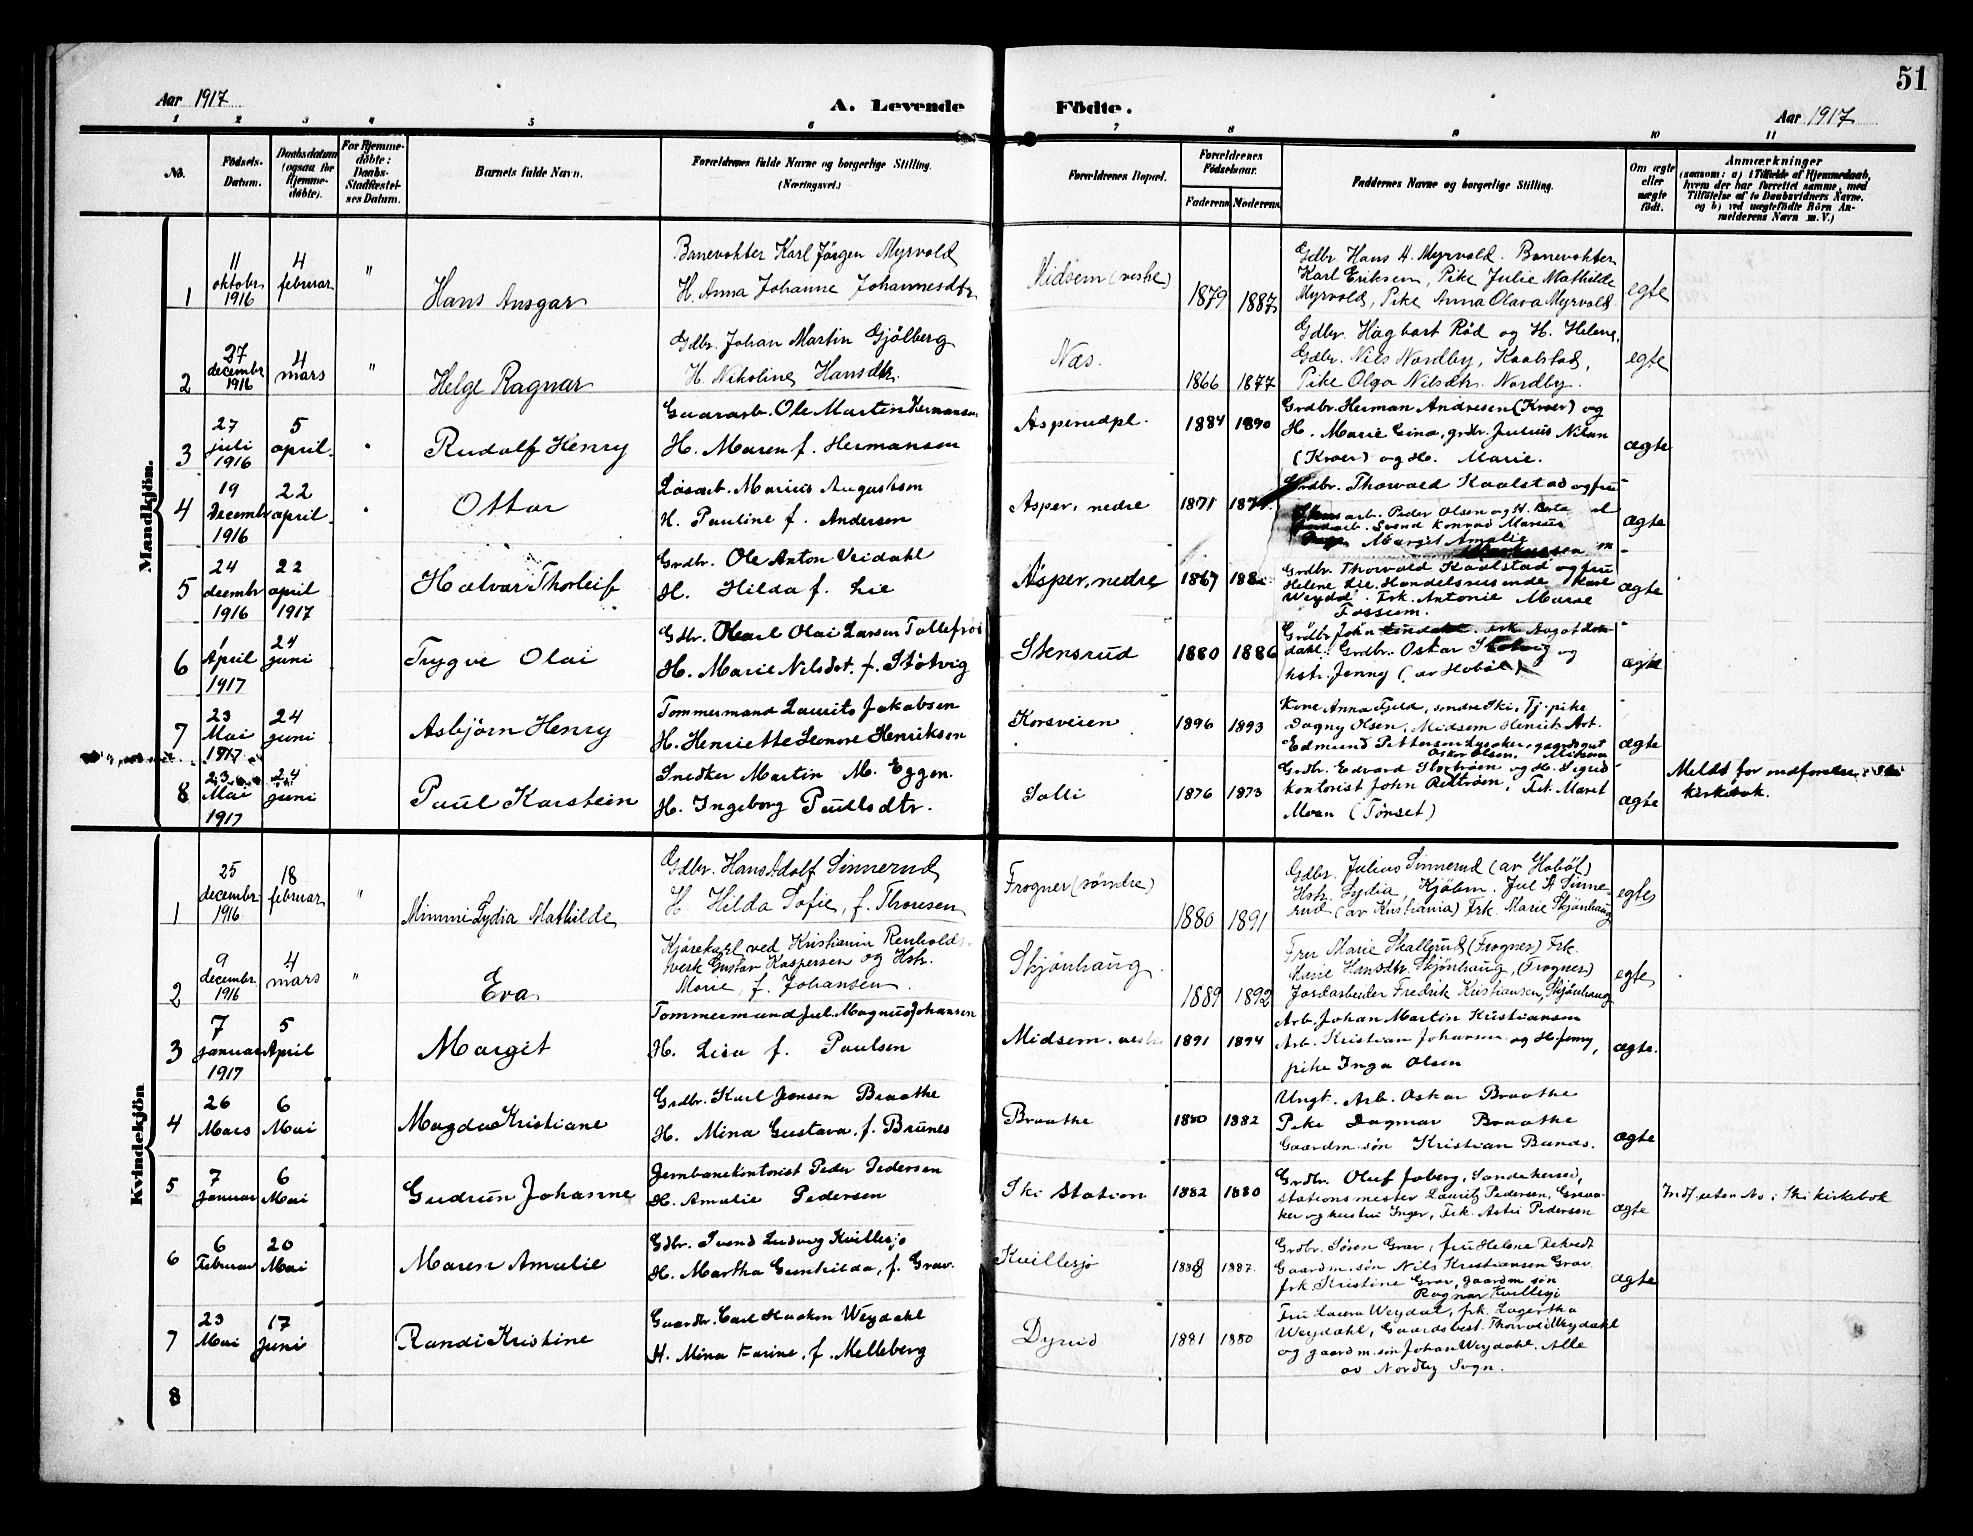 51
Aar 1917
A. Levende
Födte.
Aar 1917
1 2 3 4 5 6 7 8 9 10 11
No.
Födsels-
Datum.
Daabsdatum
(ogsaa for
Hjemme-
döbte).
For Hjemme-
döbte:
Daabs-
Stadfæstel-
ses Datum.
Barnets fulde Navn.
Forældrenes fulde Navne og borgerlige Stilling.
(Næringsvei.)
Forældrenes Bopæl.
Forældrenes
Födselsaar.
Faderens Moderens
Faddernes Navne og borgerlige Stilling.
Om ægte
eller
uægte
födt.
Anmærkninger
(saasom: a) i Tilfælde af Hjemmedaab,
hvem der har forrettet samme, med
Tilföielse af to Daabsvidners Navne.
og b) ved uægtefödte Börn An-
melderens Navn m. V.)
Mandkjön.
1
11
oktobr.
1916
4
februar
"
Hans Ansgar
Banevokter Karl Jörgen Myrvold
H. Anna Johanne Johannesdtr.
Midsem (vestre)
1879 1887
Gdbr Hans A. Myrvold. Banevokter
Karl Eriksen, Pike Julie Mathilde
Myrvold, Pike Anna Olava Myrvold
egte
2
27
decembr
1916
4
mars
"
Helge Ragnar
Gdbr. Johan Martin Gjölberg
H. Nikoline Hansdtr.
Næs.
1866 1877
Gdbr. Hagbart Röd og H. Helene,
Gdbr. Nils Nordby, Kaalstad,
Pike Olga Nilsdtr. Nordby.
egte
3
27
juli
1916
5
april.
"
Rudolf Henry
Gaardarb. Ole Martin Hermansen
H. Maren f. Hermansen
Asperudpl.
1884 1890
Grdbr. Herman Andresen (Kroer) og
H. Marie Gina, grdbr. Julius Nilsen
(Kroer) og H. Marie.
ægte
4
19
Decembr
1916
22
april.
"
Ottar
Lösarb. Marius Augustsen
H. Pauline f. Andersen
Asper, nedre
1871
Grdbr. Thorvald Kaalstad og fru
arb. Peder Olsen og H. Berta
arb. Svend Konrad Marius
Margit Amalie
ægte
5
24
desembr
1916
22
april
1917
Halvar Thorleif
Grdbr. Ole Anton Veidahl
H. Hilda f. Lie
Asper, nedre
1867
Grdbr. Thorvald Kaalstad og fru
Helene Lie. Handelsreisende Karl
Weydal. Frk. Antonie Marie
Fossum.
ægte
6
1
April
1917
24
juni
Trygve Olai
Gdbr. Olai Larsen
H. Marie Nilsdt. f. Stötvig
Stensrud
1880 1886
Grdbr John Frk. Aagot
dahl. Grdbr. Oskar Stotvig og
hstr. Jenny (av Hoböl)
ægte
7
23
Mai
1917
24
juni
Asbjörn Henry
Tommermand Laurits Jakobsen
H. Henriette Leonore Henriksen
Korsveien
1896 1893
Kone Anna Fjeld, søndre Ski, Tj. pike
Dagny Olsen, Midsem Henrik Art.
Edmund Pettersen Lysaker, gaardsgut
Oskar Olsen, Midsem
ægte
8
23
Mai
1917
24
juni
Paul Karstein
Snedker Martin M. Eggen.
H. Ingeborg Paulsdtr.
Solli
1876 1873
Grdbr. Edvard og H. Sigrid
kontorist John Frk. Maret
Moan (Tönset)
ægte
Meldt for indförelse i Ski
kirkebok.
Kvindekjön
1
25
decembr.
1916
18
februar
"
Mimmi Lydia Mathilde
Gdbr. Hans Adolf Sinnerud
H. Hilda Sofie, f. Thoresen
Frogner (söndre)
1880 1891
Gdbr. Julius Sinnerud (av Hoböl)
Hstr. Lydia, Kjöbm. Jul A Sinne-
rud (av Kristiania) Frk. Marie Skjönhaug
egte
2
9
decembr.
1916
4
mars
"
Eva
Kjörekarl ved Kristiania Renholds-
verk Gustav Kaspersen og Hstr.
Marie, f. Johansen.
Skjönhaug.
1889 1892
Fru Marie Skallerud (Frogner) Frk.
Marie Hansdtr. Skjönhaug, (Frogner)
Jordarbeider Fredrik Kristiansen, Skjönhaug
egte
3
7
januar
1917
5
April
Margit
Tommermand Jul. Magnus Johansen
H. Lisa f. Paulsen
Midsem. vestre
1891 1894
Arb. Johan Martin Kristiansen
Arb. Kristian Johansen og H. Jenny,
pike Inga Olsen
ægte.
4
26
Mars
6
Mai
Magda Kristiane
Grdbr. Karl Jensen Braathe
H. Mina Gustava, f. Brunes
Braathe
1880 1882
Ungk. Arb. Oskar Braathe
Pike Dagmar Braathe
Gaardm. søn Kristian Bunds.
ægte
5
7
Januar
6
Mai
Gudrun Johanne
Jernbanekontorist Peder Pedersen
H. Amalie Pedersen
Ski station
1882 1880
Grdbr. Oluf Joberg, Sandakersei,
stationsmester Lauritz Pedersen, Graa-
ker og hustru Inger, Frk. Astri Pedersen
ægte
Indf. uten No i Ski kirkebok
6
6
Februar
20
Mai
Maren Amalie
Gdbr. Svend Ludvig Kvillesjø
H. Martha Gunhilda, f. Grav.
Kvillesjø
1888 1887.
Grdbr. Sören Grav, fru Helene Rekvedt
Gaardm. søn Nils Kristiansen Grav
frk Kristine Grav, gaardm søn
Ragnar Kvillesjø
ægte
7
23
Mai
17
Juni
Randi Kristine
Gaardbr. Carl Haakon Weydahl
H. Mina Karine, f. Melleberg
Dyrud
1881 1880
Fru Laura Weydal, frk. Lagertha
Weydahl, Gaardsbest. Thorvald Weydahl
og gaardm. søn Johan Weydahl. Alle
av Nordby Sogn.
8